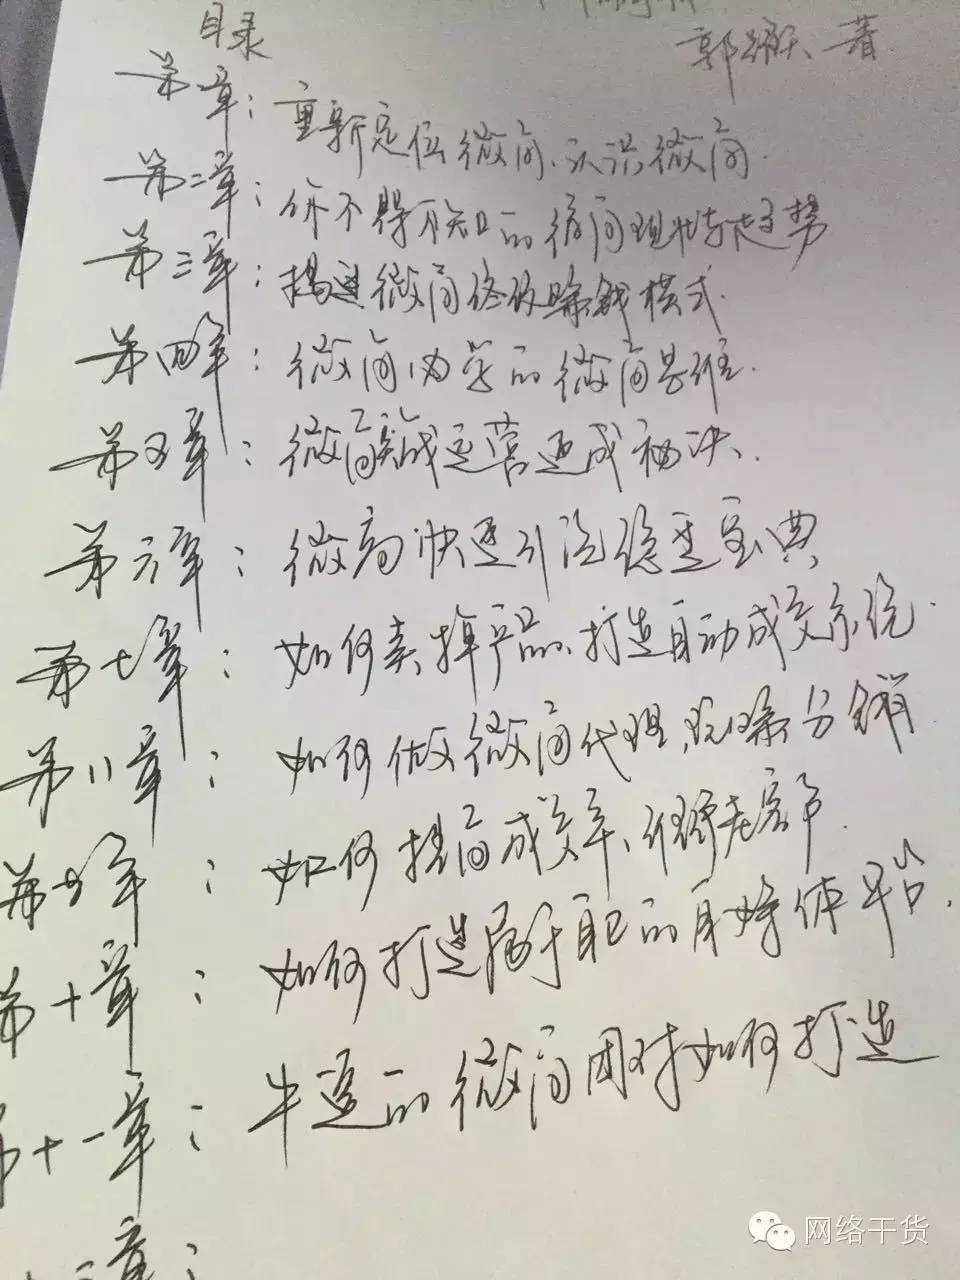 目录
郭 著
第一章：重新定位微商、认识微商.
第二章：你不得不知的微商现状与趋势
第三章：揭速微商终极赚钱模式.
第四章：微商必学的微商思维.
第五章：微商实战运营速成秘决.
第六章：微商快速引流稳重宝典
第七章：如何卖掉产品、打造自动成交系统.
第八章：如何做微商代理,玩爆分销
第九章：如何提高成交率、维护老客户.
第十章：如何打造属于自己的自媒体平台.
第十一章：牛逼的微商团队如何打造
二章：
网络干货